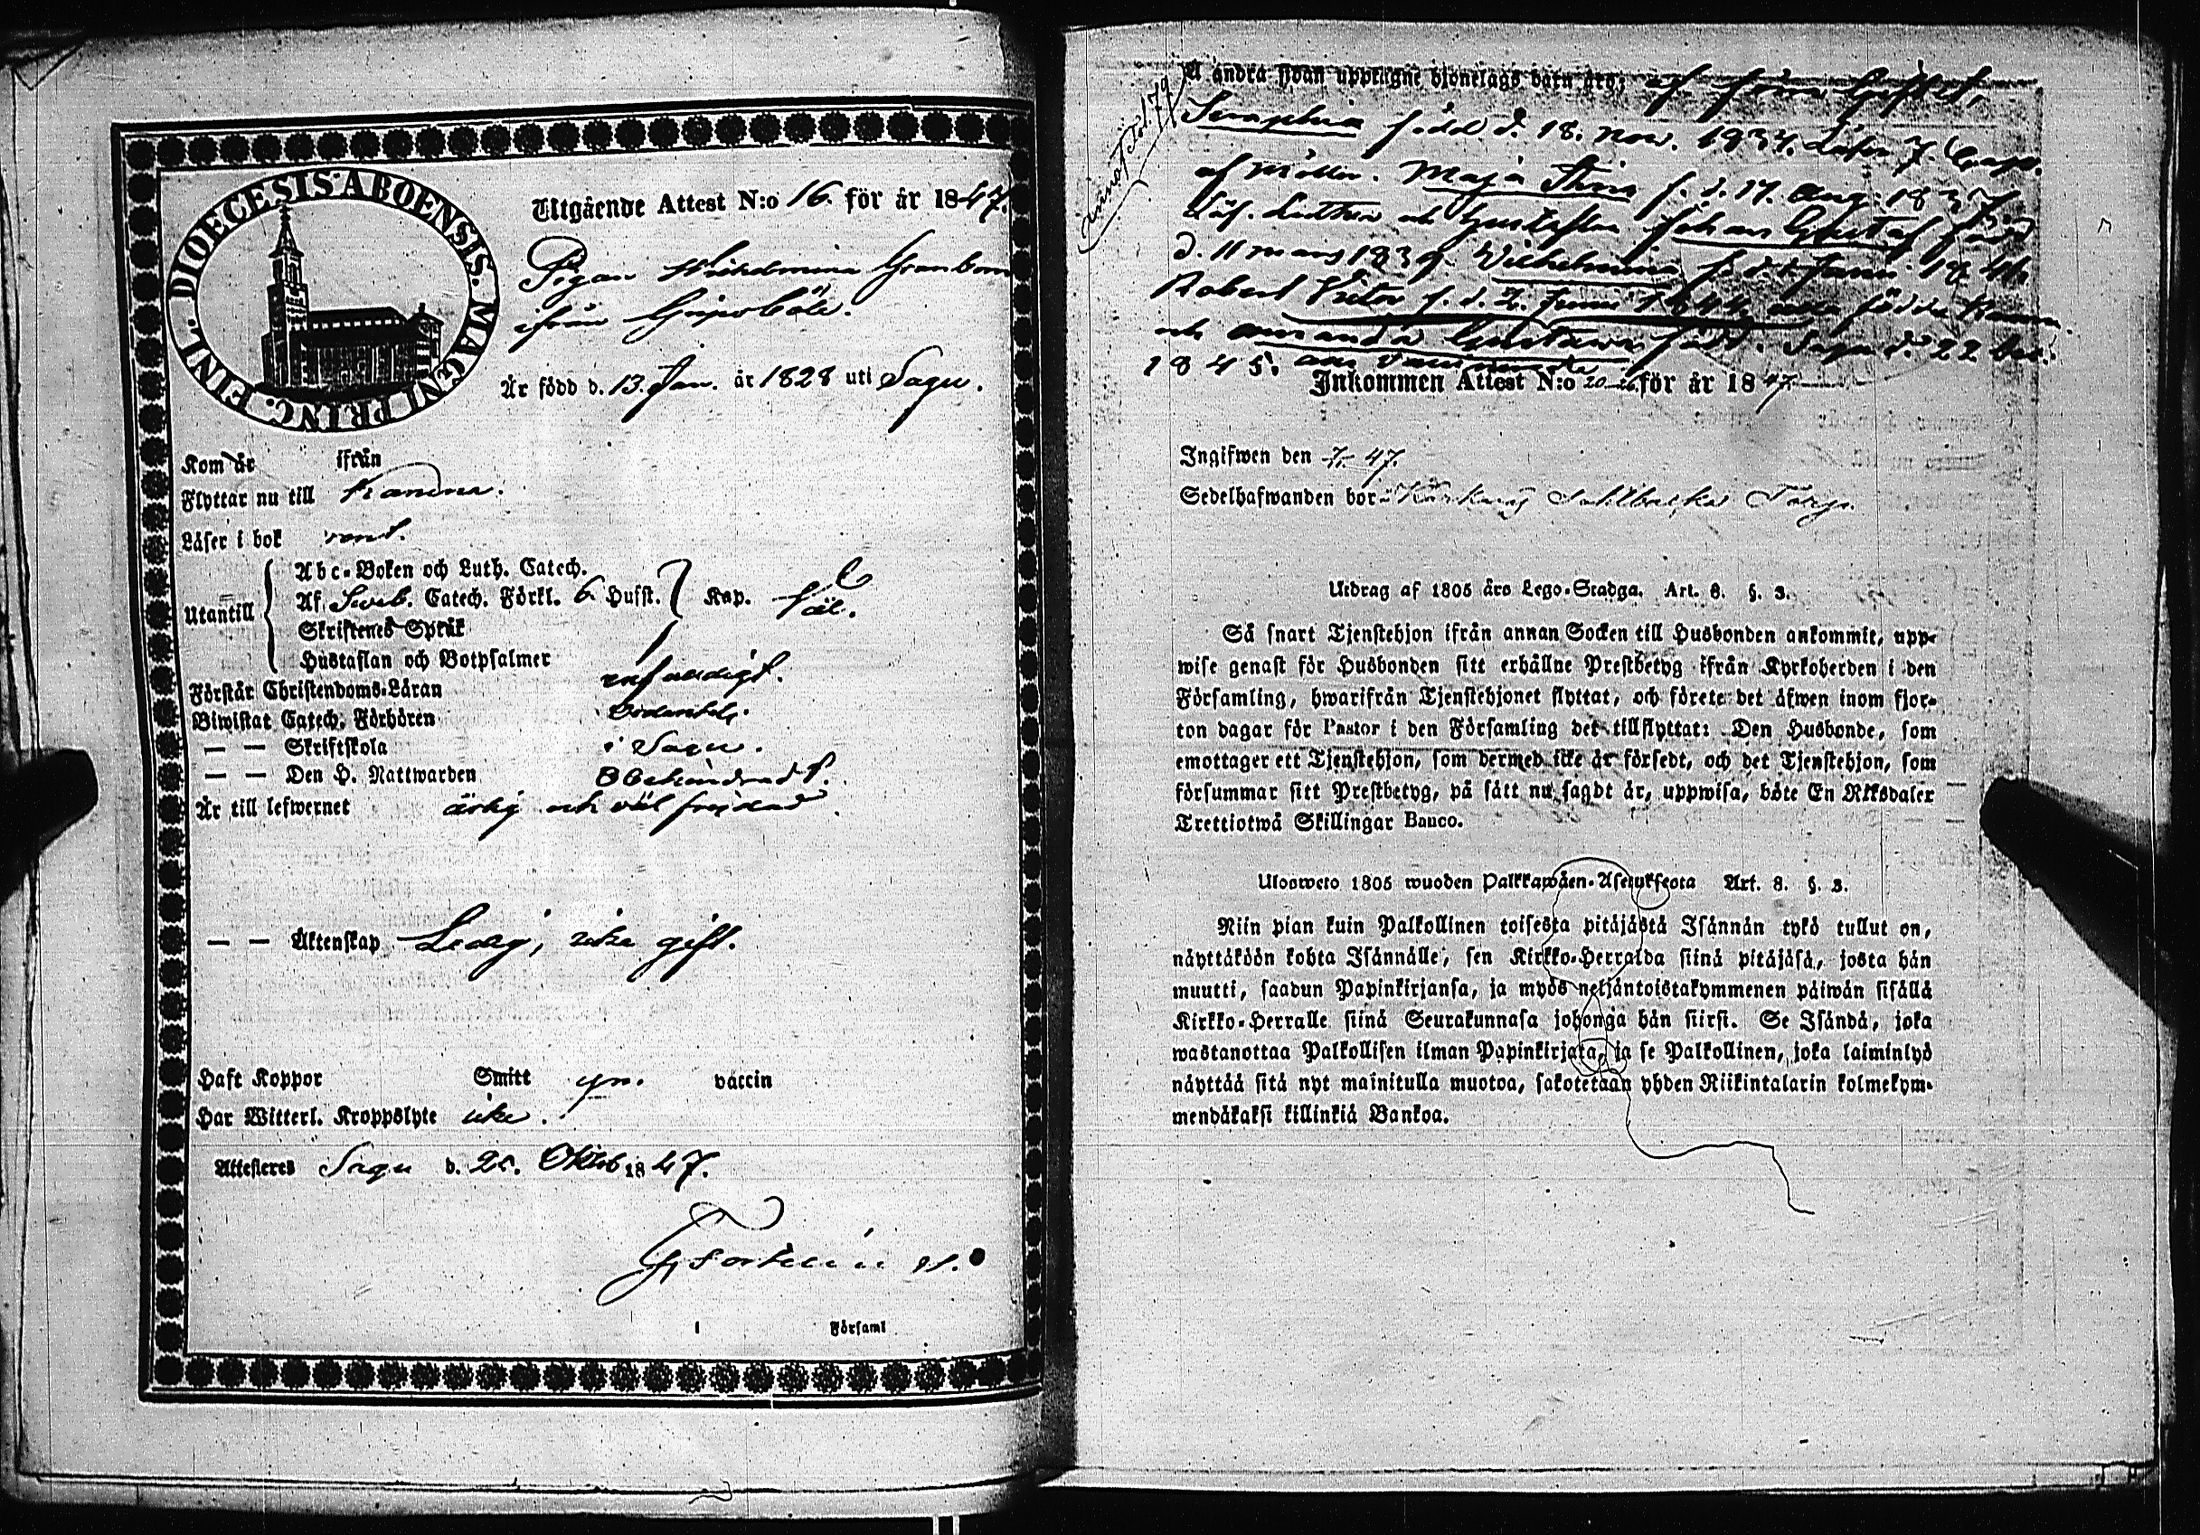 DIOECESIS ABOENSIS. MAGNI PRINC. FINL.
Utgående Attest N:o 16. för år 1847.
Pigan Wilhelmina Granbom
ifrån
Är född d. 13. Jan. år 1828 uti Sagu.
Kom år ifrån
Flyttar nu till
Läser i bok rent.
Utantill
Abc-Boken och Luth. Catech.
Af Sveb. Catech. Förkl. 6 Hufst. Kap. väl.
Skriftenes Språk
Hustaflan och Botpsalmer
Förstår Christendoms-Läran enfaldigt.
Biwistat Catech. Förhören
— — Skriftskola i Sagu.
— — Den H. Nattwarden Obehindrad.
Är till lefwernet ärlig och väl frejdad.
— — Äktenskap Ledig, icke gift.
Haft Koppor Smitt vaccin
Har Witterl. Kroppslyte icke.
Attesteras Sagu d. 25. Oktob 1847.
i Församl
Å andra sidan upptagne hjonelags barn äro;
Seraphia född d. 18. Nov. 1834. Läser 7. Cap.
af Möller. Maja Stina f. d. 17. Aug. 183
Läs. Luther och Johan Gustaf född
d. 11 Mars 1839. Wilhelmina f. d.
Robert Victor f. d. 2. Juni 1844, alla födde
och Amanda Gustava född i Sagu d. 22
1845.
Inkommen Attest N:o 20-26 för år 1847.
Ingifwen den 47.
Sedelhafwanden bor
Utdrag af 1805 års Lego-Stadga. Art. 8. §. 3.
Så snart Tjenstehjon ifrån annan Socken till Husbonden ankommit, upp-
wise genast för Husbonden sitt erhållne Prestbetyg ifrån Kyrkoherden i den
Församling, hwarifrån Tjenstehjonet flyttat, och förete det äfwen inom fjor-
ton dagar för Pastor i den Församling det tillflyttat: Den Husbonde, som
emottager ett Tjenstehjon, som dermed icke är försedt, och det Tjenstehjon, som
försummar sitt Prestbetyg, på sätt nu sagdt är, uppwisa, böte En Riksdaler
Trettiotwå Skillingar Banco.
Ulosweto 1805 wuoden Palkkawäen-Asetuksesta Art. 8. §. 3.
Niin pian kuin Palkollinen toisesta pitäjästä Isännän tykö tullut on,
näyttäköön kohta Isännälle, sen Kirkko-Herralda siinä pitäjäsä, josta hän
muutti, saadun Papinkirjansa, ja myös neljäntoistakymmenen päiwän sisällä
Kirkko-Herralle siinä Seurakunnasa johonga hän siirsi. Se Isändä, joka
wastanottaa Palkollisen ilman Papinkirjata, ja se Palkollinen, joka laiminlyö
näyttää sitä nyt mainitulla muotoa, sakotetaan yhden Riikintalarin kolmekym-
mendäkaksi killinkiä Bankoa.